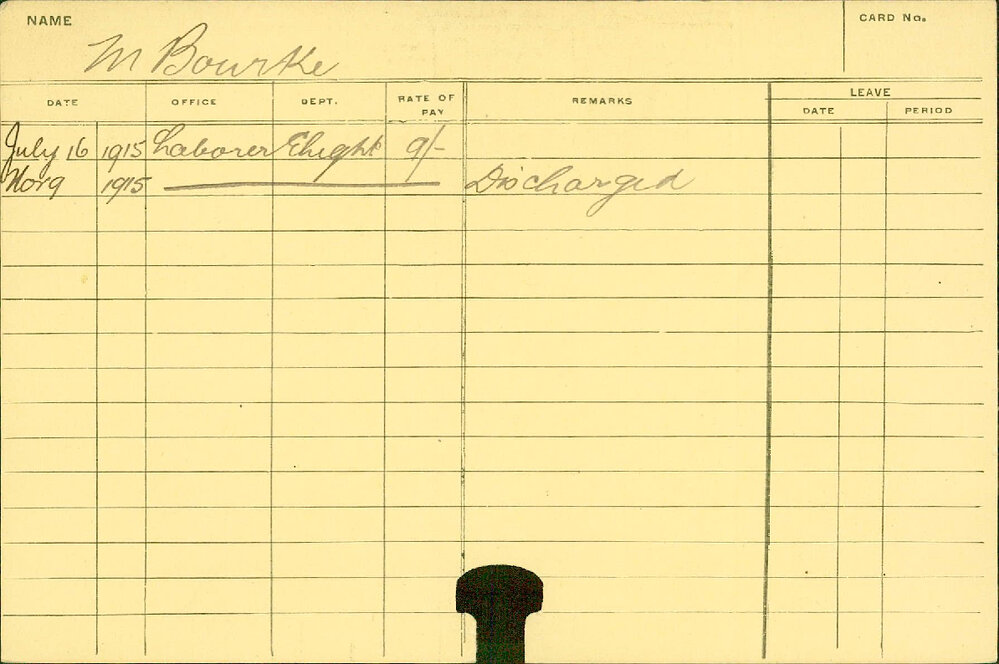 NAME
M Bourke
CARD No.
DATE OFFICE DEPT. RATE OF PAY REMARKS LEAVE
DATE PERIOD
July 16 1915 Laborer E Light 9/-
Nov 9 1915 Discharged